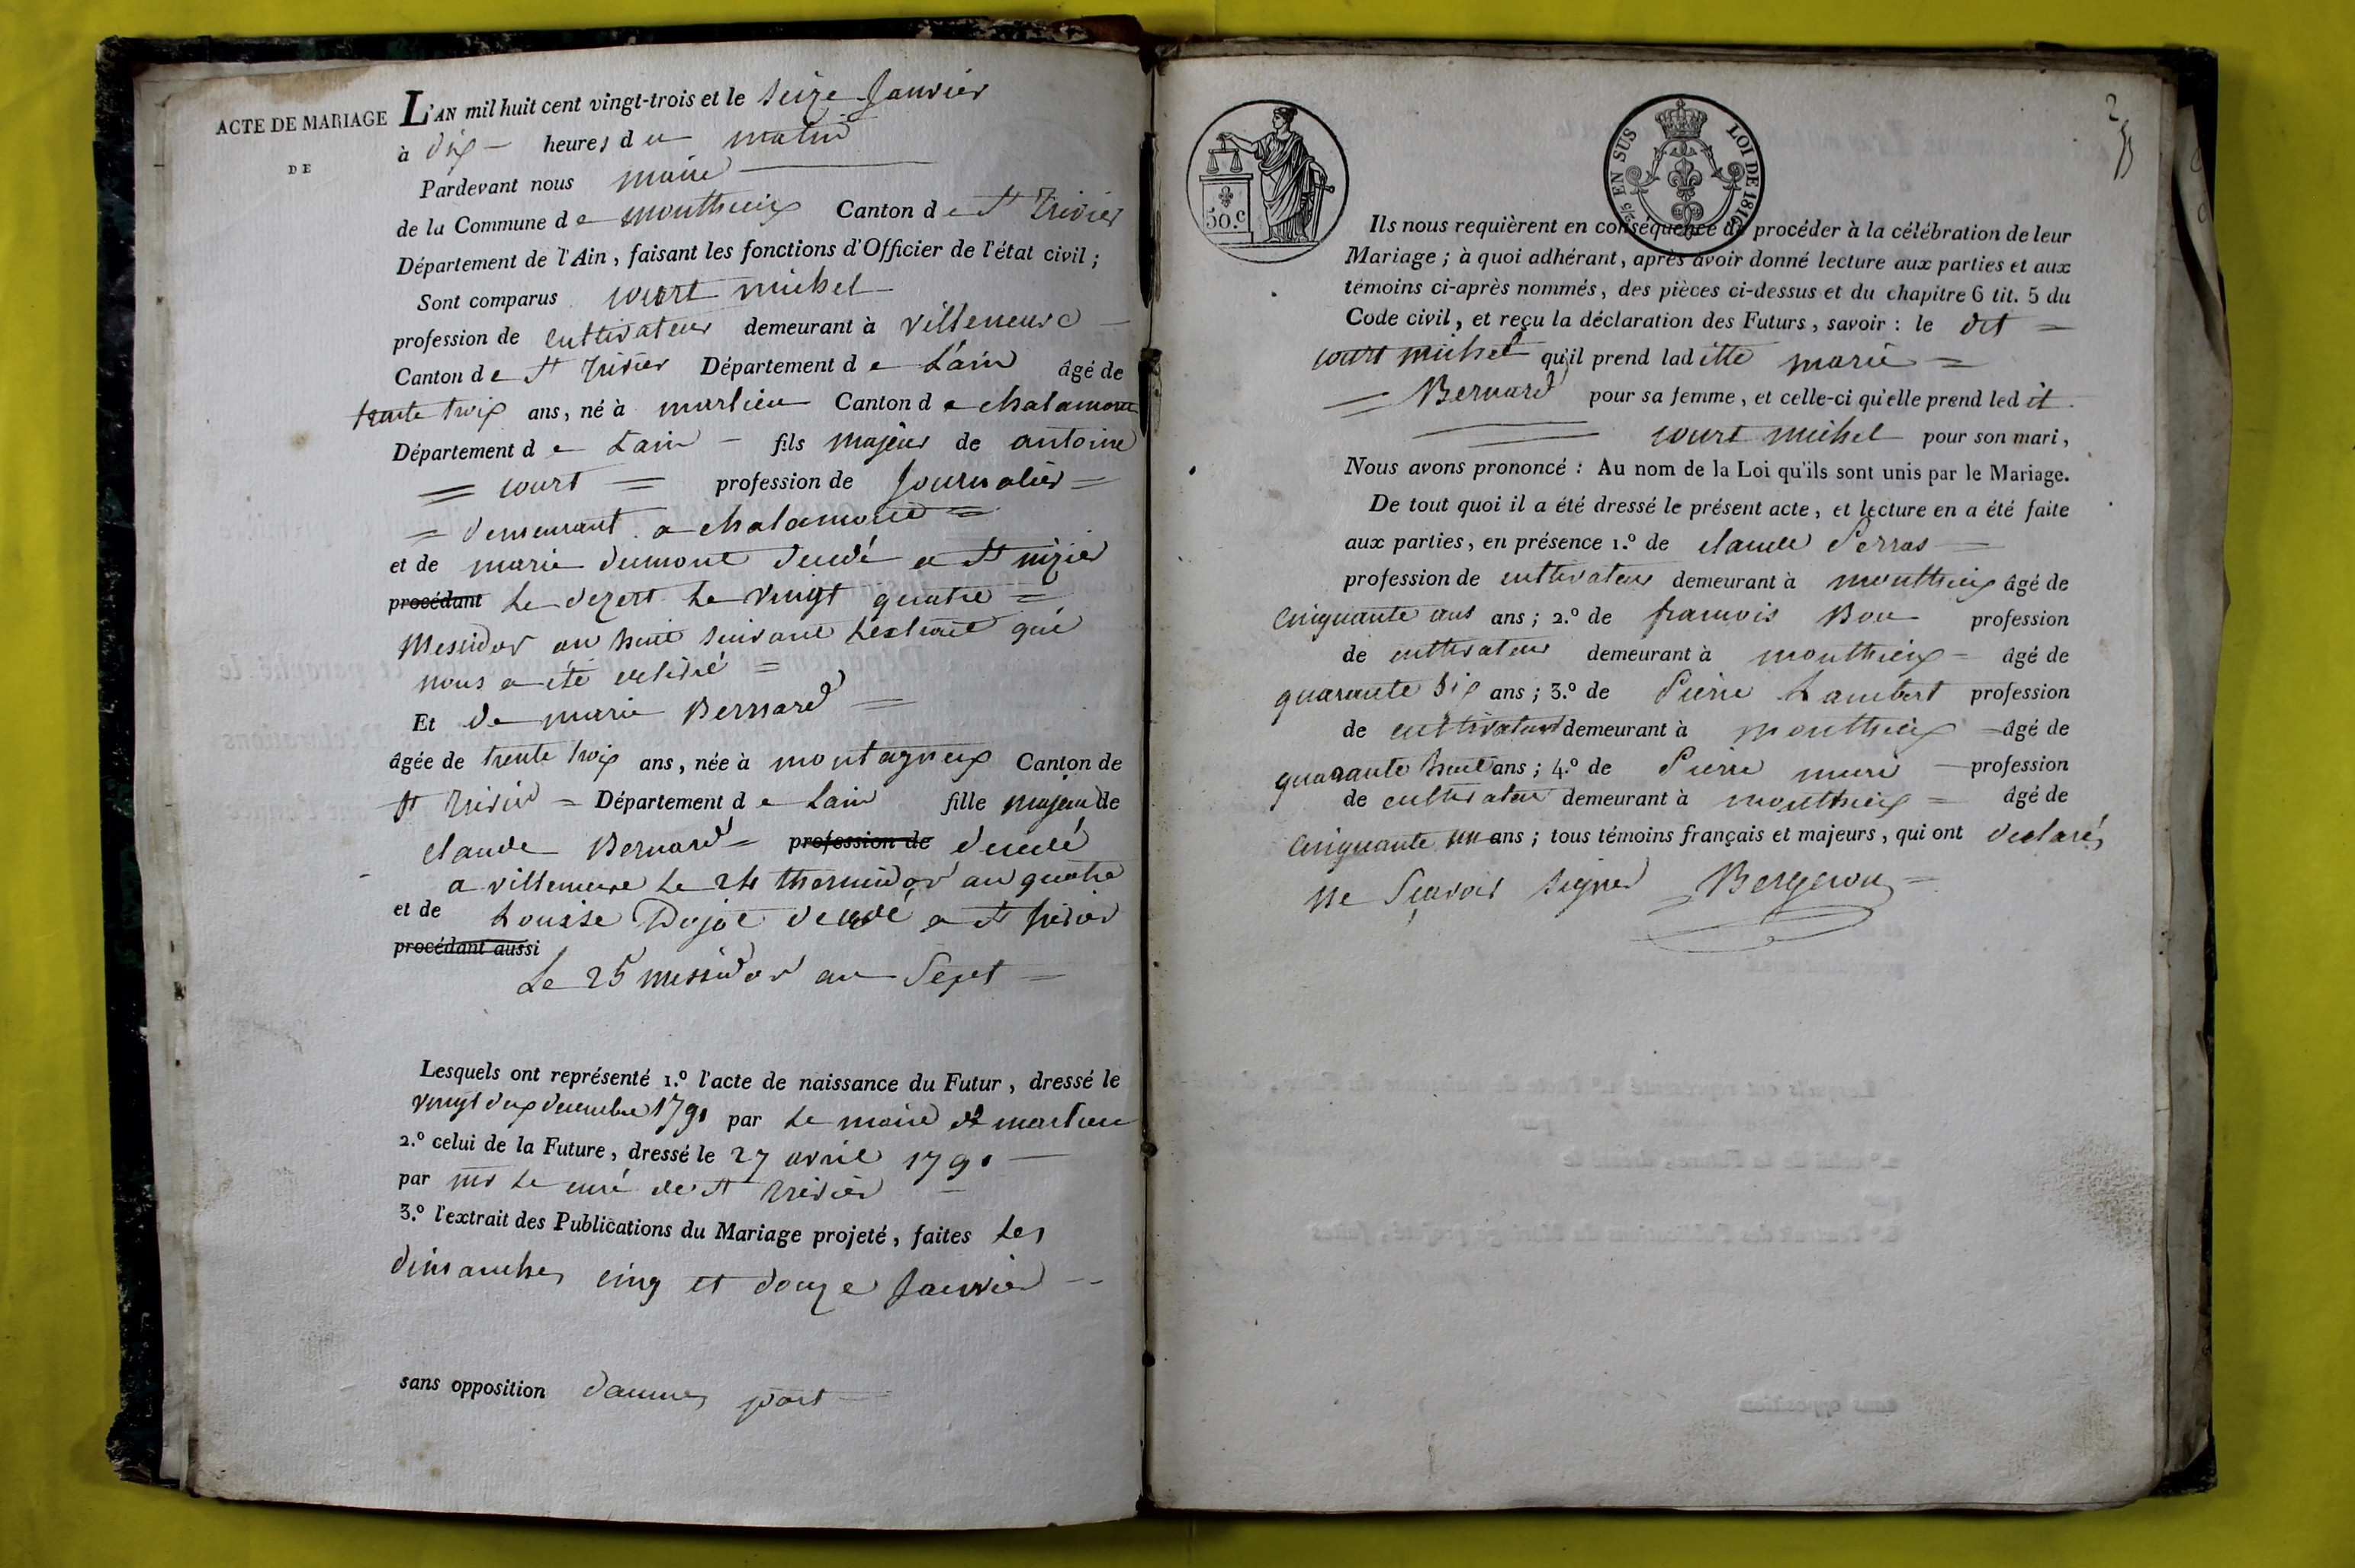 ACTE DE MARIAGE
DE
L'AN mil huit cent vingt-trois et le seize Janvier
à dix heures du matin
Pardevant nous maire
de la Commune de monthieux Canton de St Trivier
Département de l'Ain, faisant les fonctions d'Officier de l'état civil ;
Sont comparus court michel
profession de cultivateur demeurant à villeneuve
Canton de St Trivier Département de Lain âgé de
trente trois ans, né à marlieu Canton de chalamont
Département de Lain fils majeur de antoine
court profession de Journalier
demeurant a chalamont
et de marie dumont décédé a St nizier
procédant Le dezert Le vingt quatre
Messidor an huit suivant Lextrait qui
nous a été exhibé
Et de marie Bernard
âgée de trente trois ans, née à montagneux Canton de
St Trivier Département de Lain fille majeur de
claude Bernard profession de décédé
a villeneuve Le 24 thermidor an quatre
et de Louise décédé a St Trivier
procédant aussi
Le 25 messidor an Sept
Lesquels ont représenté 1.º l'acte de naissance du Futur, dressé le
vingt deux decembre 1790 par Le maire de marlieu
2.º celui de la Future, dressé le 27 avril 1790
par mr Le curé de St Trivier
3.º l'extrait des Publications du Mariage projeté, faites Les
dimanches cinq et douze Janvier
sans opposition daucune part
2
50.c
2/5 EN SUS
LOI DE 1816
Ils nous requièrent en conséquence de procéder à la célébration de leur
Mariage ; à quoi adhérant, après avoir donné lecture aux parties et aux
témoins ci-après nommés, des pièces ci-dessus et du chapitre 6 tit. 5 du
Code civil, et reçu la déclaration des Futurs, savoir : le dit
court michel qu'il prend laditte marie
Bernard pour sa femme, et celle-ci qu'elle prend ledit
court michel pour son mari,
Nous avons prononcé : Au nom de la Loi qu'ils sont unis par le Mariage.
De tout quoi il a été dressé le présent acte, et lecture en a été faite
aux parties, en présence 1.º de claude Perras
profession de cultivateur demeurant à monthieux âgé de
Cinquante ans ans ; 2.º de francois Bon profession
de cultivateur demeurant à monthieux âgé de
quarante six ans ; 3.º de Pierre Lambert profession
de cultivateur demeurant à monthieux âgé de
quarante huit ans ; 4.º de Pierre profession
de cultivateur demeurant à monthieux âgé de
Cinquante un ans ; tous témoins français et majeurs, qui ont declarés
ne Scavoir signer Bergeron